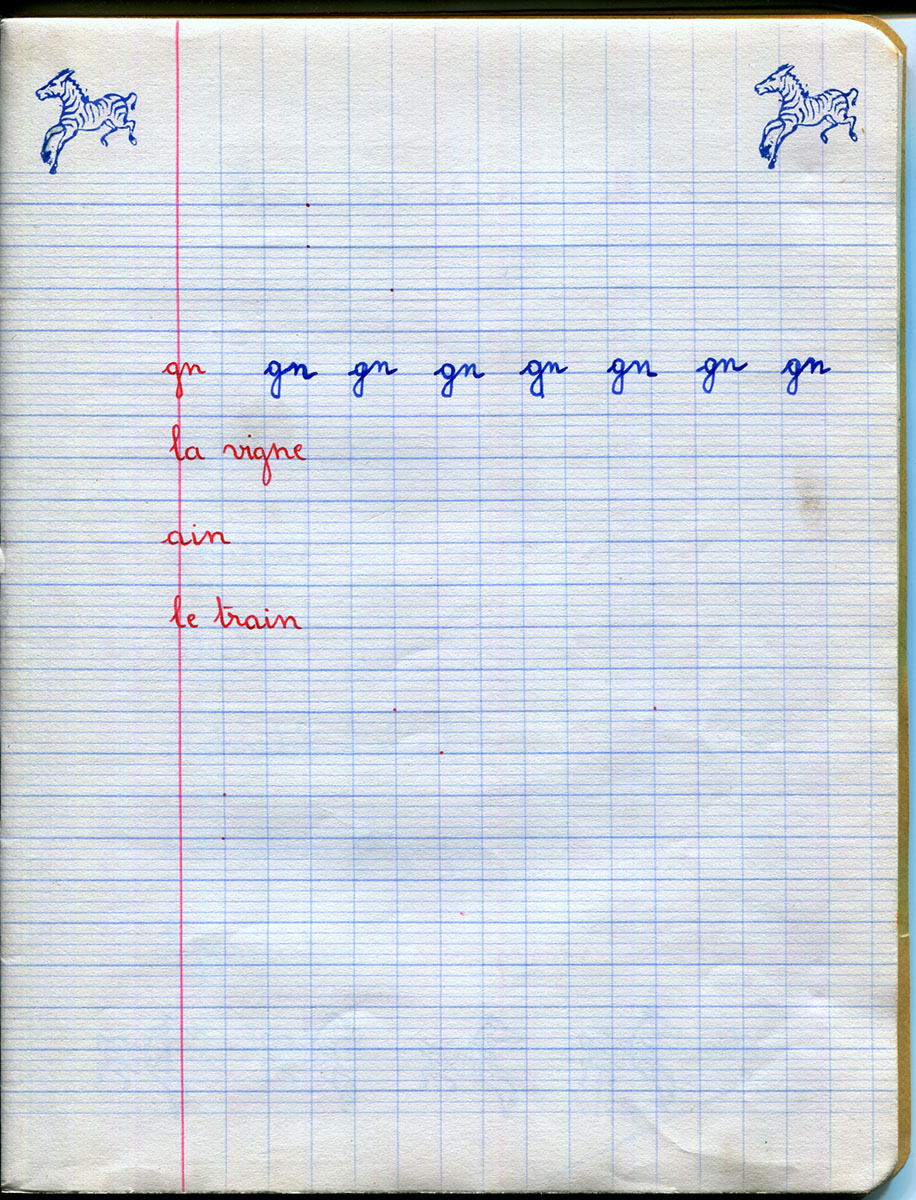 gn gn gn gn gn gn gn gn
la vigne
ain
le train